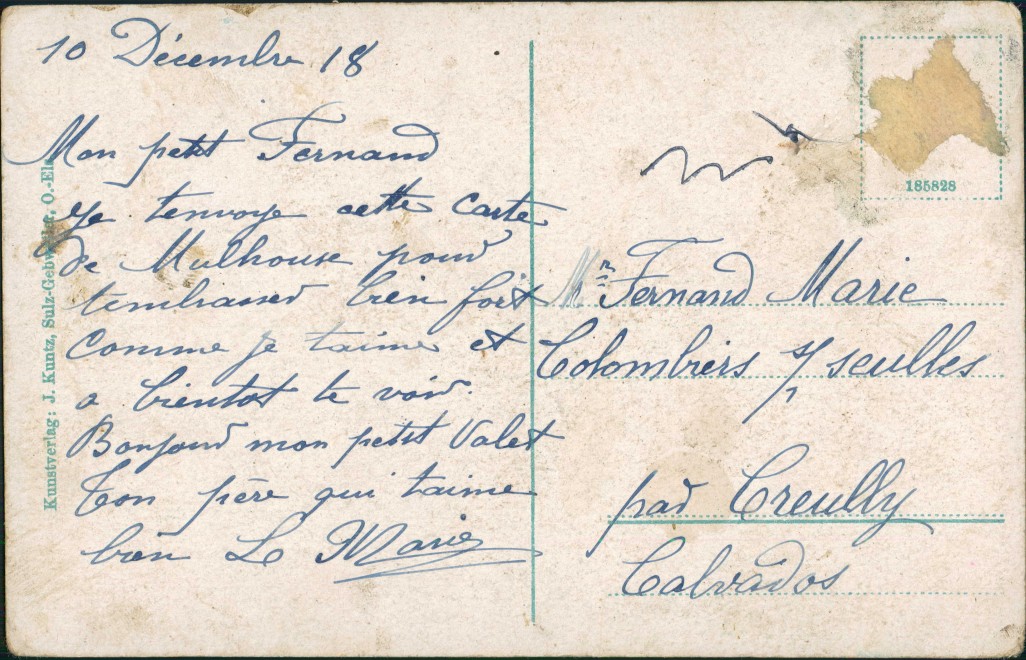 10 Décembre 18
Mon petit Fernand
Je tenvoye cette Carte
de Mulhouse pour
tembrasser bien fort
Comme je taime et
a bientot te voir.
Bonjour mon petit Valet
Ton père qui taime
bien L Marie
Kunstverlag: J. Kuntz, Sulz-Gebweiler, O.-Els
185828
Mr Fernand Marie
Colombiers s/ seulles
par Creully
Calvados